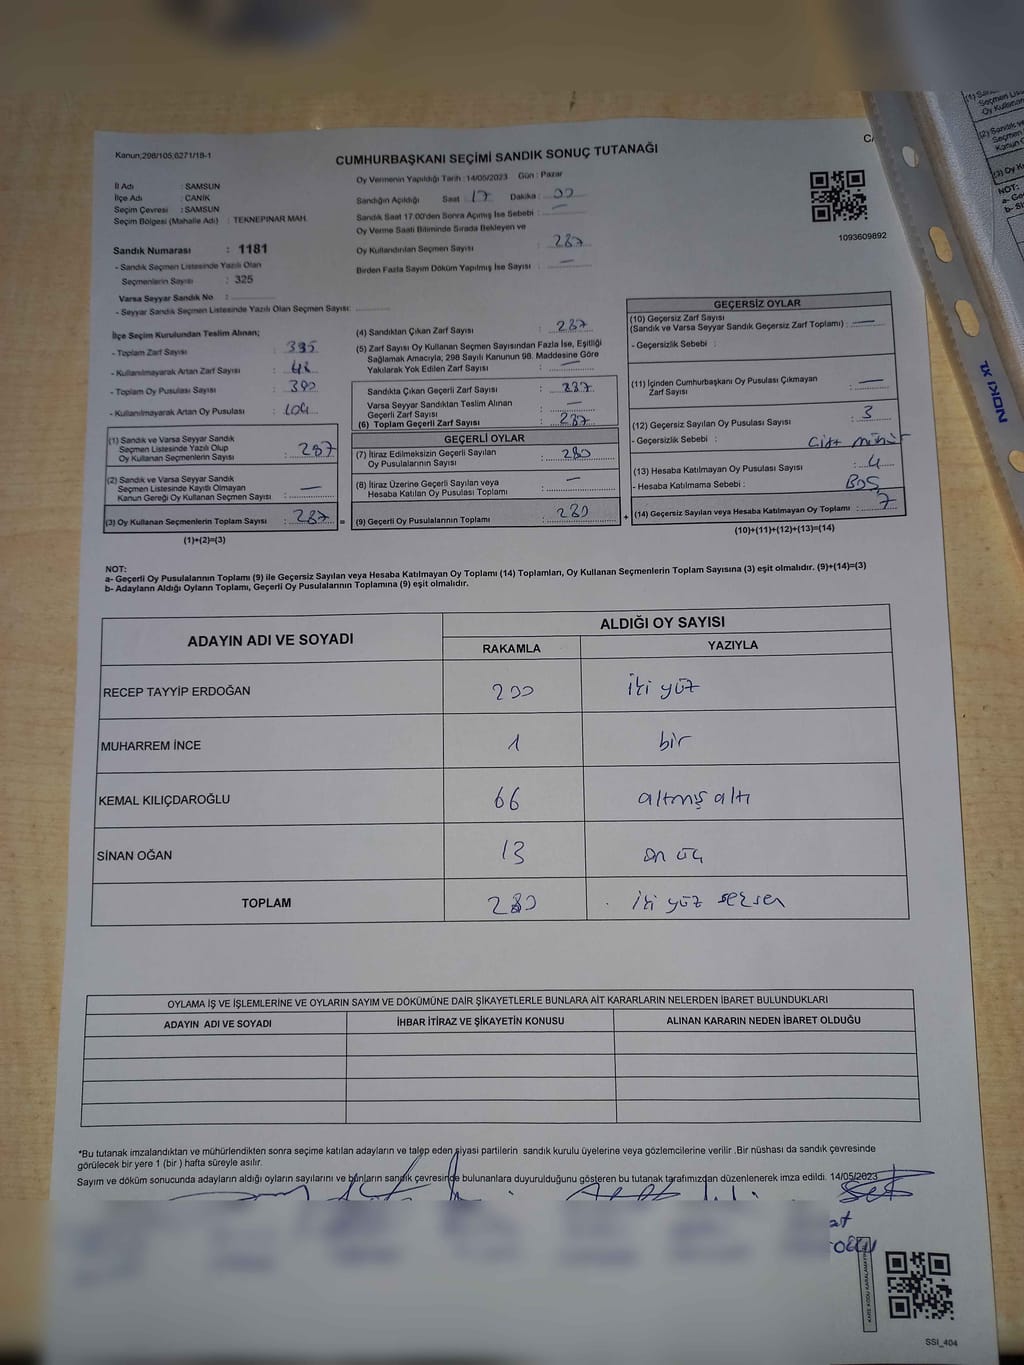 Kanun;298/105,6271/18-1
CUMHURBAŞKANI SEÇİMİ SANDIK SONUÇ TUTANAĞI
İl Adı : SAMSUN
İlçe Adı : CANİK
Seçim Çevresi : SAMSUN
Seçim Bölgesi (Mahalle Adı) : TEKNEPINAR MAH.
Sandık Numarası : 1181
- Sandık Seçmen Listesinde Yazılı Olan
Seçmenlerin Sayısı : 325
Varsa Seyyar Sandık No :
- Seyyar Sandık Seçmen Listesinde Yazılı Olan Seçmen Sayısı:
Oy Vermenin Yapıldığı Tarih : 14/05/2023 Gün : Pazar
Sandığın Açıldığı Saat 17 Dakika : 00
Sandık Saat 17.00'den Sonra Açımış İse Sebebi : —
Oy Verme Saati Bitiminde Sırada Bekleyen ve
Oy Kullandırılan Seçmen Sayısı : 287
Birden Fazla Sayım Döküm Yapılmış İse Sayısı : —
1093609892
İlçe Seçim Kurulundan Teslim Alınan;
- Toplam Zarf Sayısı : 335
- Kullanılmayarak Artan Zarf Sayısı : 48
- Toplam Oy Pusulası Sayısı : 390
- Kullanılmayarak Artan Oy Pusulası : 104
(1) Sandık ve Varsa Seyyar Sandık
Seçmen Listesinde Yazılı Olup
Oy Kullanan Seçmenlerin Sayısı : 287
(2) Sandık ve Varsa Seyyar Sandık
Seçmen Listesinde Kayıtlı Olmayan
Kanun Gereği Oy Kullanan Seçmen Sayısı : —
(3) Oy Kullanan Seçmenlerin Toplam Sayısı : 287 =
(1)+(2)=(3)
(4) Sandıktan Çıkan Zarf Sayısı : 287
(5) Zarf Sayısı Oy Kullanan Seçmen Sayısından Fazla İse, Eşitliği
Sağlamak Amacıyla, 298 Sayılı Kanunun 98. Maddesine Göre
Yakılarak Yok Edilen Zarf Sayısı : —
Sandıkta Çıkan Geçerli Zarf Sayısı : 287
Varsa Seyyar Sandıktan Teslim Alınan
Geçerli Zarf Sayısı : —
(6) Toplam Geçerli Zarf Sayısı : 287
GEÇERLİ OYLAR
(7) İtiraz Edilmeksizin Geçerli Sayılan
Oy Pusulalarının Sayısı : 280
(8) İtiraz Üzerine Geçerli Sayılan veya
Hesaba Katılan Oy Pusulası Toplamı : —
(9) Geçerli Oy Pusulalarının Toplamı : 280 +
GEÇERSİZ OYLAR
(10) Geçersiz Zarf Sayısı
(Sandık ve Varsa Seyyar Sandık Geçersiz Zarf Toplamı) : —
- Geçersizlik Sebebi :
(11) İçinden Cumhurbaşkanı Oy Pusulası Çıkmayan
Zarf Sayısı : —
(12) Geçersiz Sayılan Oy Pusulası Sayısı : 3
- Geçersizlik Sebebi : Çift mühür
(13) Hesaba Katılmayan Oy Pusulası Sayısı : 4
- Hesaba Katılmama Sebebi : BOŞ
(14) Geçersiz Sayılan veya Hesaba Katılmayan Oy Toplamı : 7
(10)+(11)+(12)+(13)=(14)
NOT:
a- Geçerli Oy Pusulalarının Toplamı (9) ile Geçersiz Sayılan veya Hesaba Katılmayan Oy Toplamı (14) Toplamları, Oy Kullanan Seçmenlerin Toplam Sayısına (3) eşit olmalıdır. (9)+(14)=(3)
b- Adayların Aldığı Oyların Toplamı, Geçerli Oy Pusulalarının Toplamına (9) eşit olmalıdır.
ADAYIN ADI VE SOYADI ALDIĞI OY SAYISI
RAKAMLA YAZIYLA
RECEP TAYYİP ERDOĞAN 200 iki yüz
MUHARREM İNCE 1 bir
KEMAL KILIÇDAROĞLU 66 altmış altı
SİNAN OĞAN 13 on üç
TOPLAM 280 iki yüz seksen
OYLAMA İŞ VE İŞLEMLERİNE VE OYLARIN SAYIM VE DÖKÜMÜNE DAİR ŞİKAYETLERLE BUNLARA AİT KARARLARIN NELERDEN İBARET BULUNDUKLARI
ADAYIN ADI VE SOYADI İHBAR İTİRAZ VE ŞİKAYETİN KONUSU ALINAN KARARIN NEDEN İBARET OLDUĞU
*Bu tutanak imzalandıktan ve mühürlendikten sonra seçime katılan adayların ve talep eden siyasi partilerin sandık kurulu üyelerine veya gözlemcilerine verilir .Bir nüshası da sandık çevresinde
görülecek bir yere 1 (bir ) hafta süreyle asılır.
Sayım ve döküm sonucunda adayların aldığı oyların sayılarını ve bunların sandık çevresinde bulunanlara duyurulduğunu gösteren bu tutanak tarafımızdan düzenlenerek imza edildi. 14/05/2023
SSI_404
NOKI XL